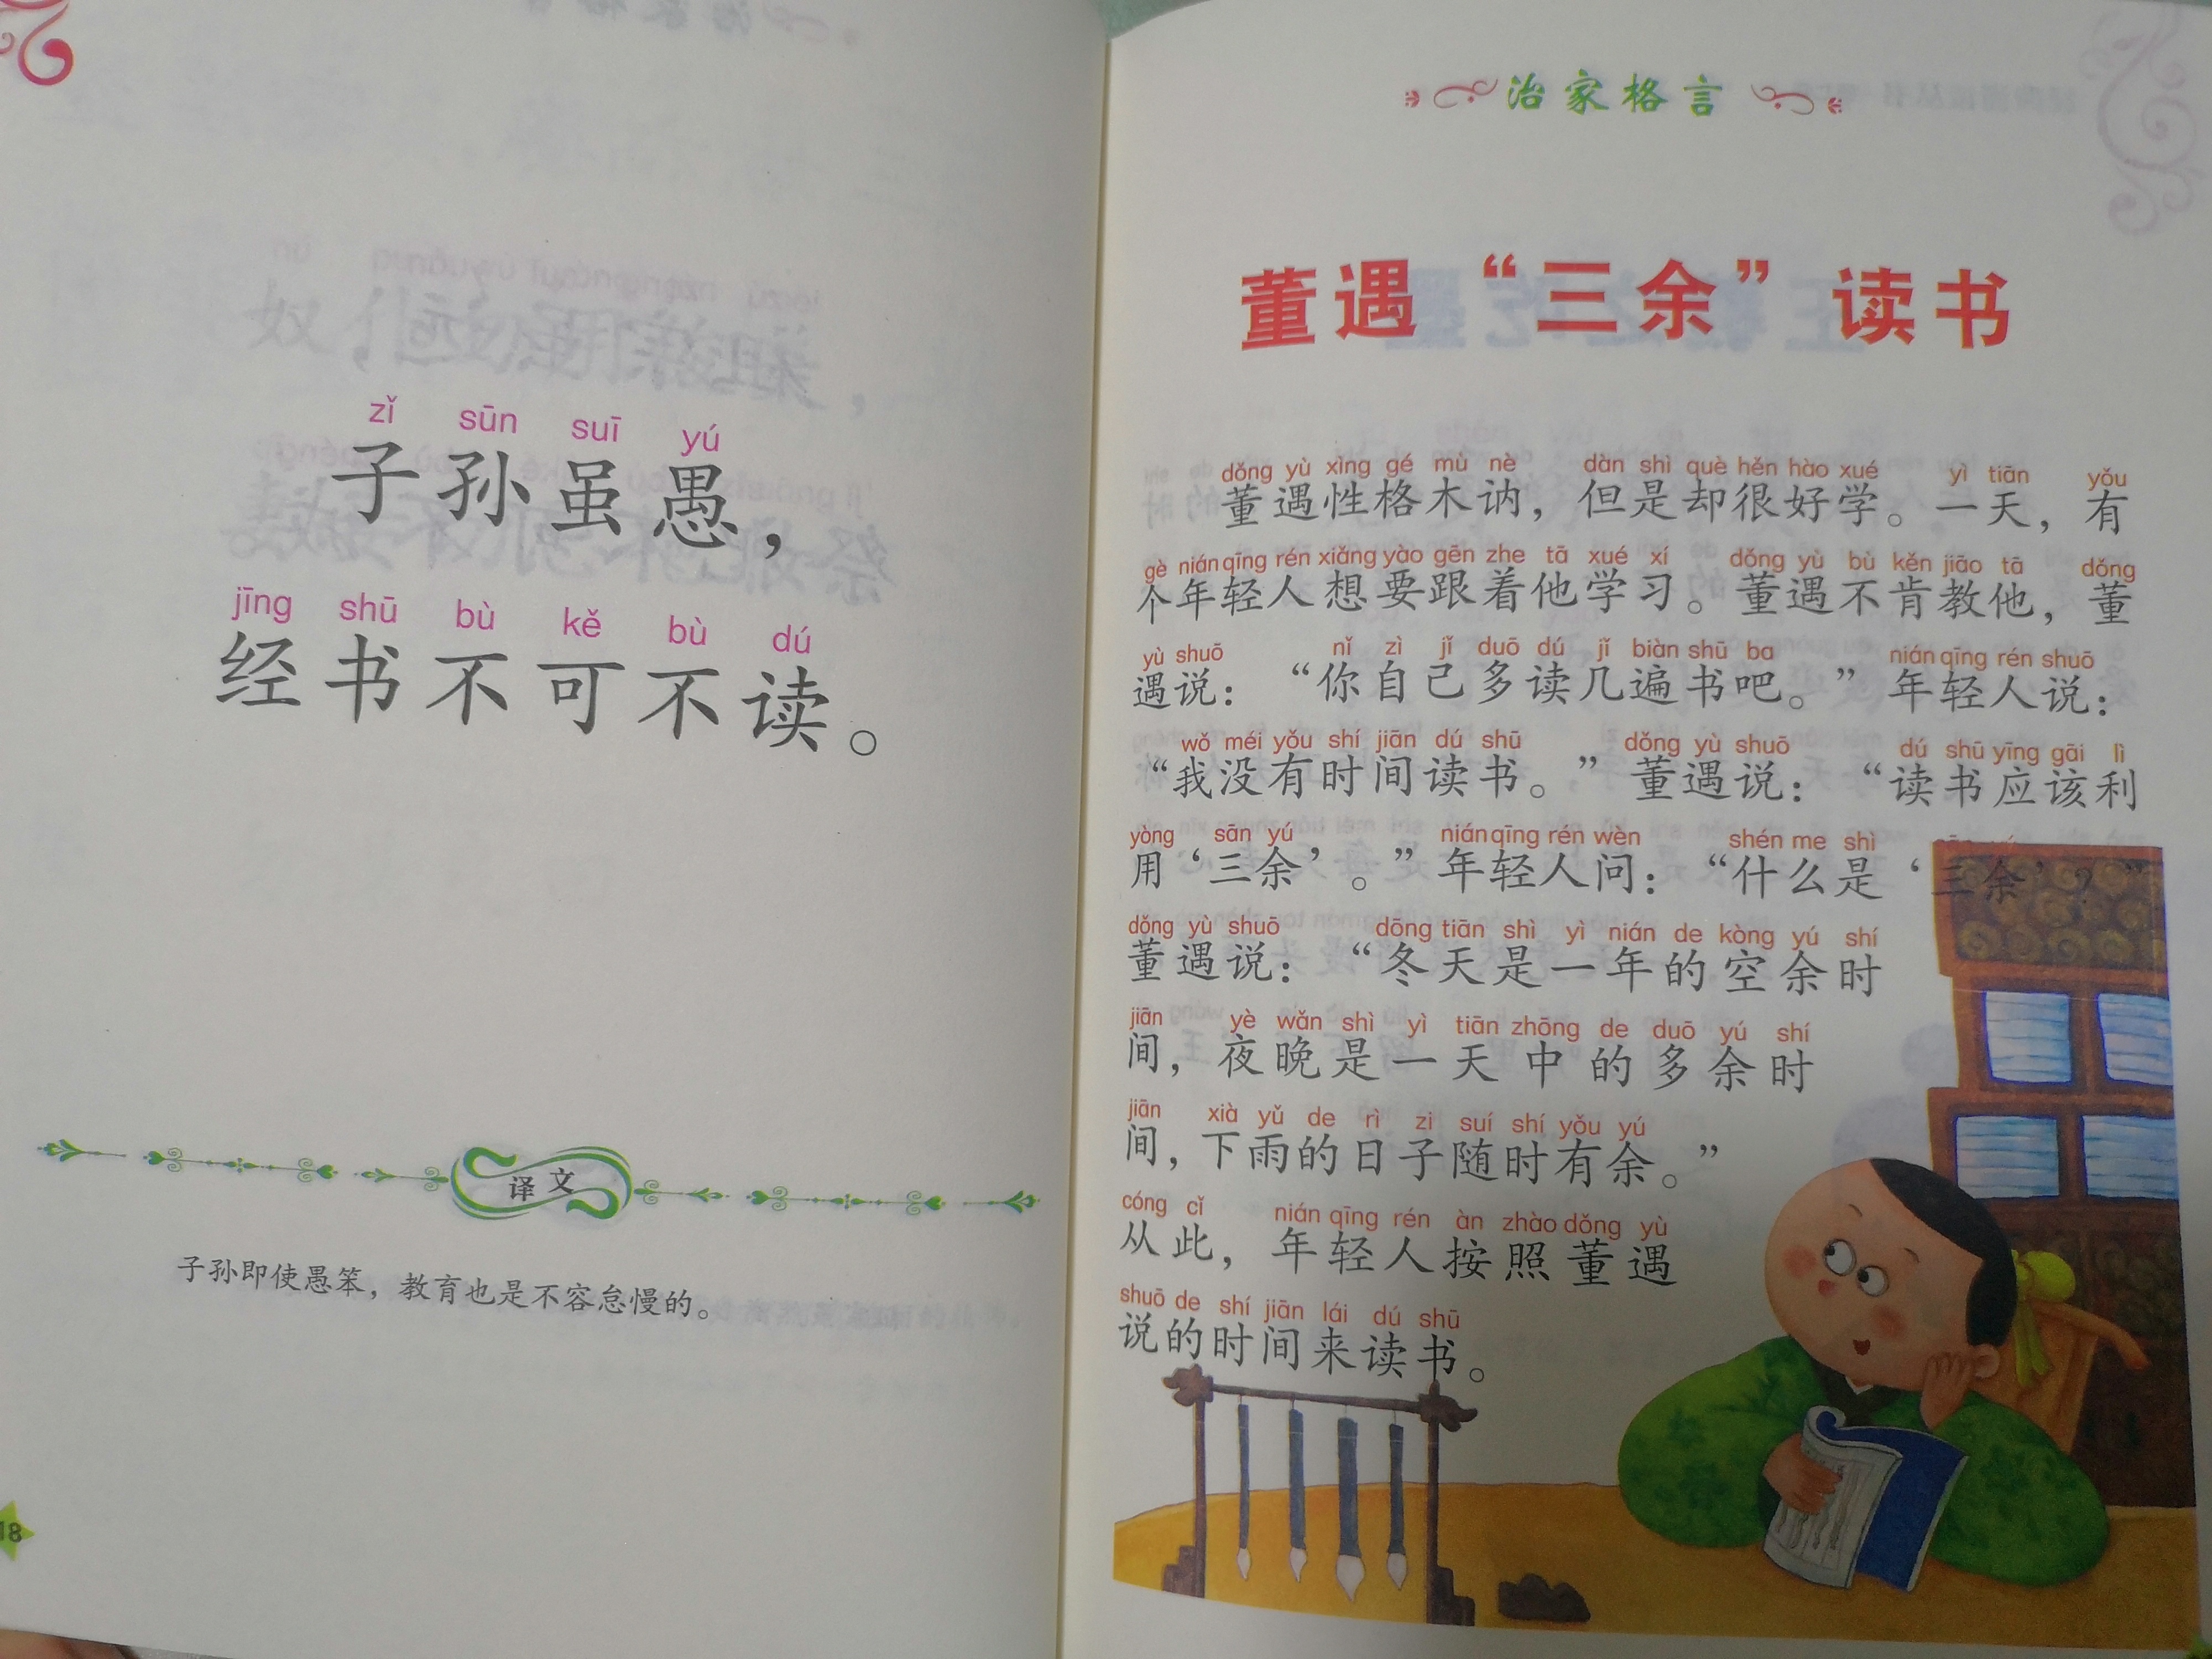 zǐ sūn suī yú
子孙虽愚，
jīng shū bù kě bù dú
经书不可不读。
译文
子孙即使愚笨，教育也是不容怠慢的。
18
治家格言
董遇“三余”读书
dǒng yù xìng gé mù nè dàn shì què hěn hào xué yì tiān yǒu
董遇性格木讷，但是却很好学。一天，有
gè nián qīng rén xiǎng yào gēn zhe tā xué xí dǒng yù bù kěn jiāo tā dǒng
个年轻人想要跟着他学习。董遇不肯教他，董
yù shuō nǐ zì jǐ duō dú jǐ biàn shū ba nián qīng rén shuō
遇说：“你自己多读几遍书吧。”年轻人说：
wǒ méi yǒu shí jiān dú shū dǒng yù shuō dú shū yīng gāi lì
“我没有时间读书。”董遇说：“读书应该利
yòng sān yú nián qīng rén wèn shén me shì
用‘三余’。”年轻人问：“什么是‘三余’？”
dǒng yù shuō dōng tiān shì yì nián de kòng yú shí
董遇说：“冬天是一年的空余时
jiān yè wǎn shì yì tiān zhōng de duō yú shí
间，夜晚是一天中的多余时
jiān xià yǔ de rì zi suí shí yǒu yú
间，下雨的日子随时有余。”
cóng cǐ nián qīng rén àn zhào dǒng yù
从此，年轻人按照董遇
shuō de shí jiān lái dú shū
说的时间来读书。